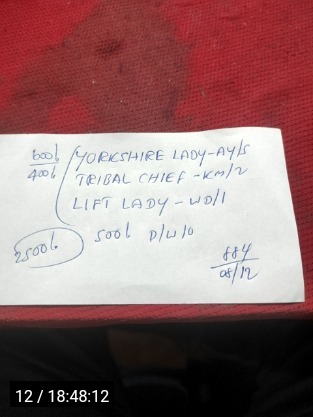 600/- YORKSHIRE LADY-AY/5
400/- TRIBAL CHIEF -KM/2
LIFT LADY - WD/1
2500/- 500/- D/W/O
884
08/12
12 / 18:48:12